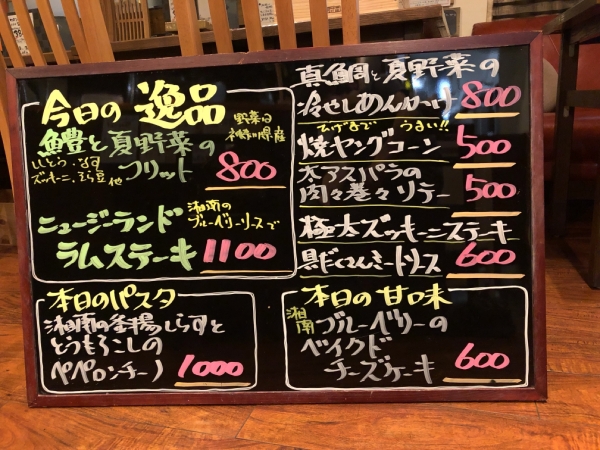 今日の逸品
野菜は
神奈川県産
鱧と夏野菜の
ししとう・なす
ズッキーニ・そら豆 他
フリット 800
ニュージーランド
湘南の
ブルーベリーソースで
ラムステーキ 1100
真鯛と夏野菜の
冷やしあんかけ 800
ひげまで うまい!!
焼ヤングコーン 500
太アスパラの
肉々巻々ソテー 500
極太ズッキーニステーキ
具だくさんミートソース 600
本日のパスタ
湘南の釜揚しらすと
とうもろこしの
ペペロンチーノ 1000
本日の甘味
湘南
ブルーベリーの
ベイクド
チーズケーキ 600